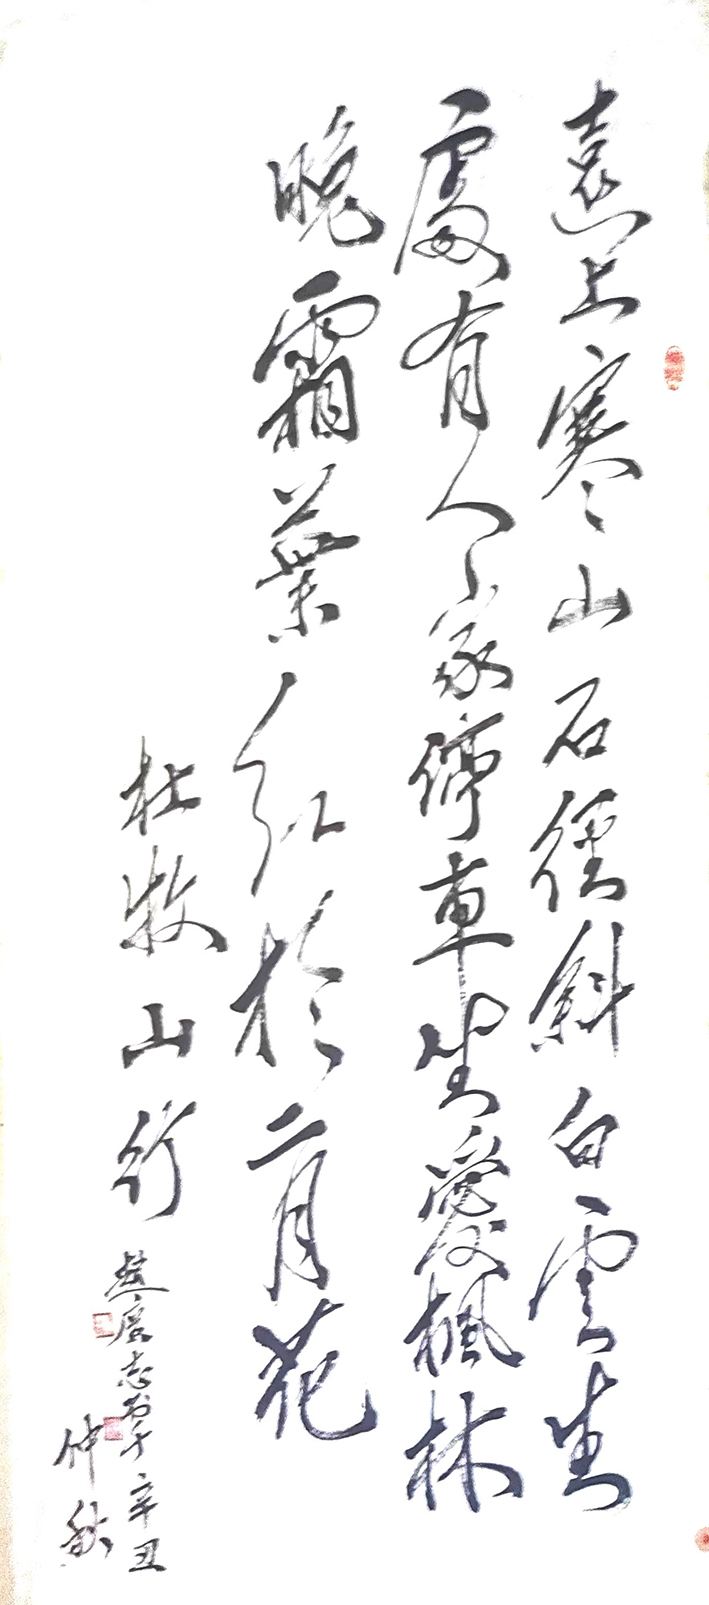 遠上寒山石徑斜白雲生
處有人家停車坐愛楓林
晚霜葉紅於二月花
杜牧山行
趙慶志書于辛丑
仲秋